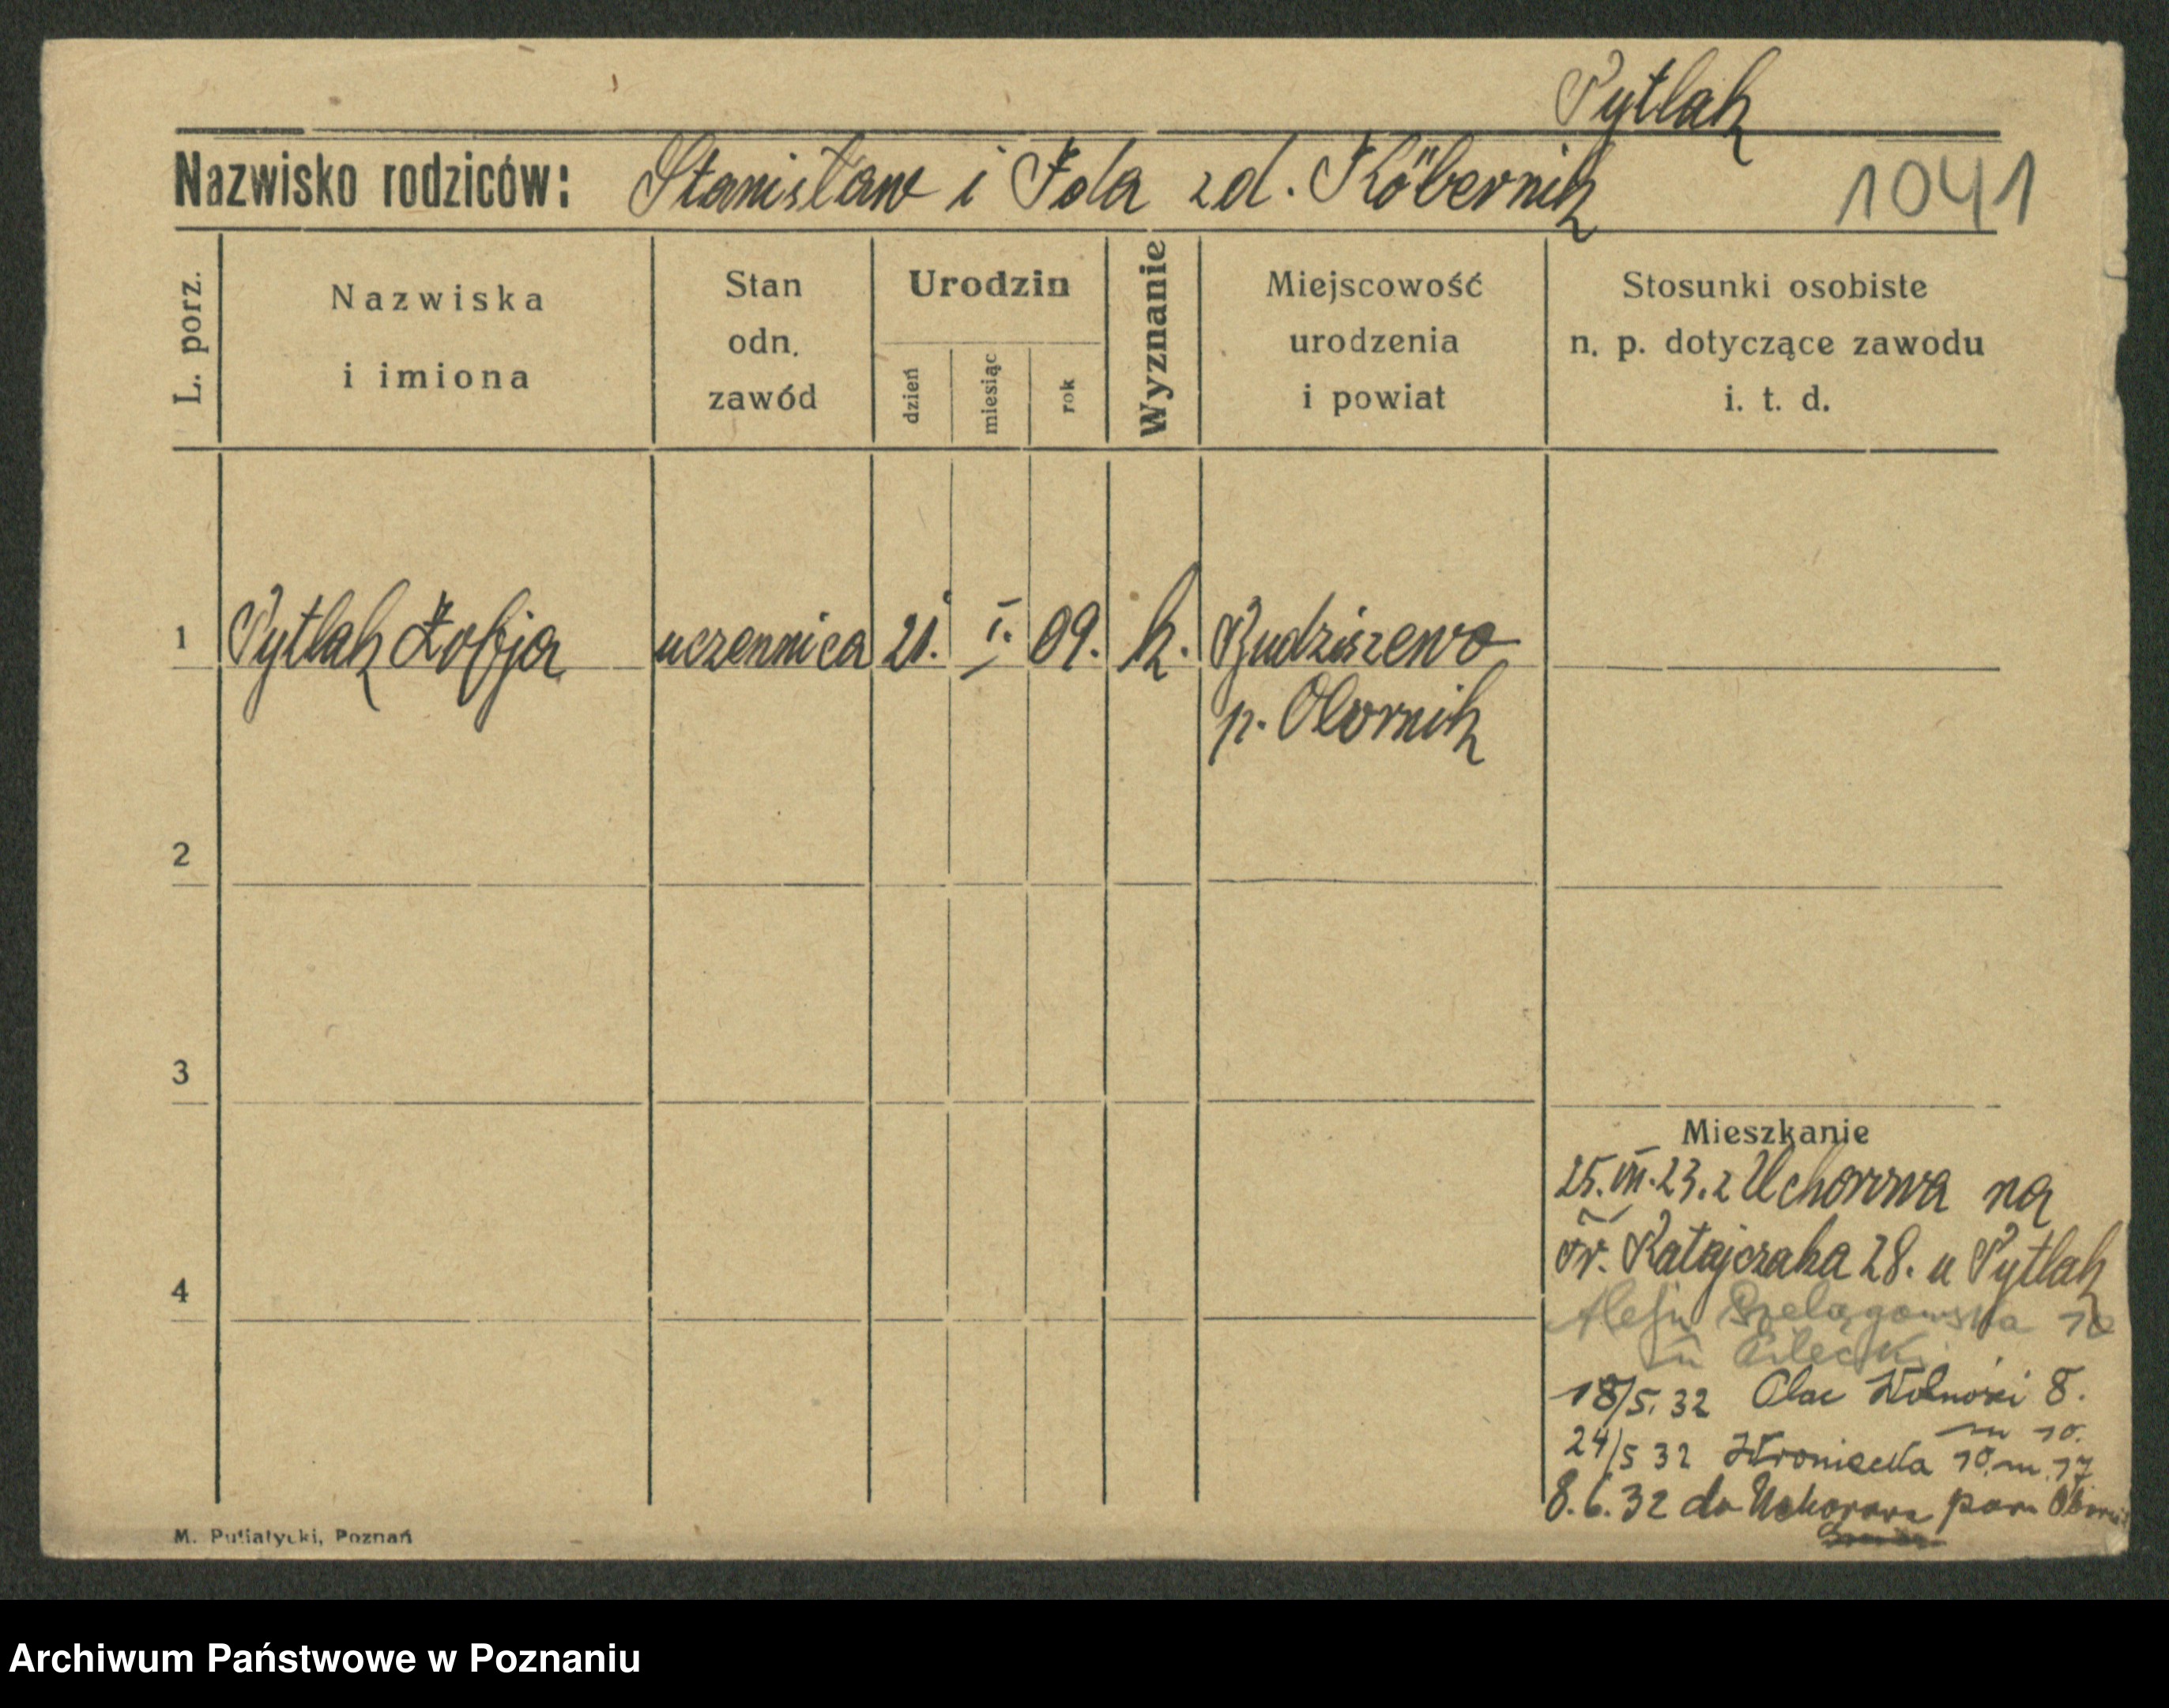 Pytlak
Nazwisko rodziców: Stanisław i Ida zd. Köbernik 1041
L. porz.
Nazwiska
i imiona
Stan
odn.
zawód
Urodzin
dzień
miesiąc
rok
Wyznanie
Miejscowość
urodzenia
i powiat
Stosunki osobiste
n. p. dotyczące zawodu
i. t. d.
1 Pytlak Zofja uczennica 21. I. 09. k. Budziszewo
p. Obornik
2
3
Mieszkanie
25. VII. 23. z Uchorowa na
Fr. Ratajczaka 28. u Pytlak
4
Szelągowska
18/5. 32 Plac Wolności 8.
m 10.
24/5 32 Wroniecka 10. m. 17
8. 6. 32 do Uchorowa pow
M. Putiatycki, Poznań
Archiwum Państwowe w Poznaniu